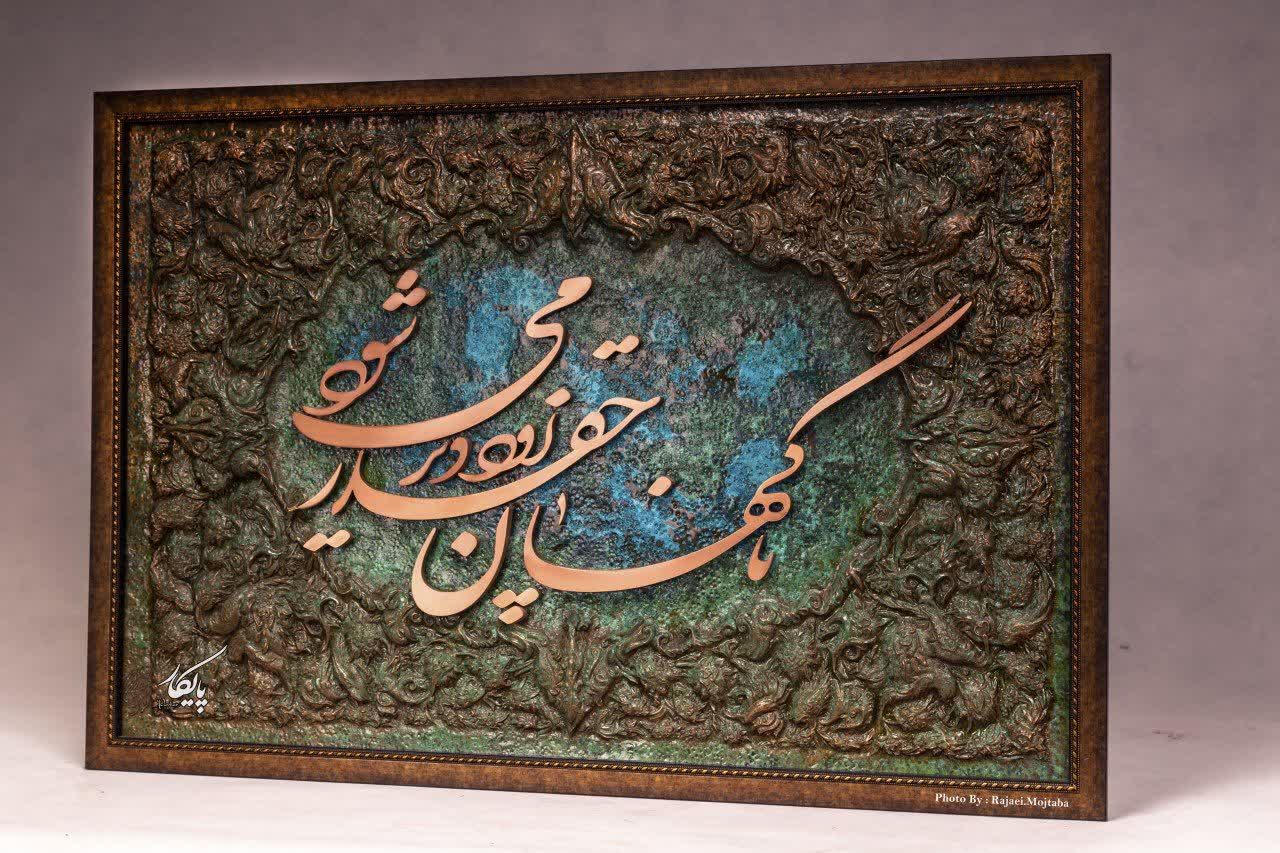 ناگهان چقدر زود دیر می شود
Photo By : Rajaei.Mojtaba